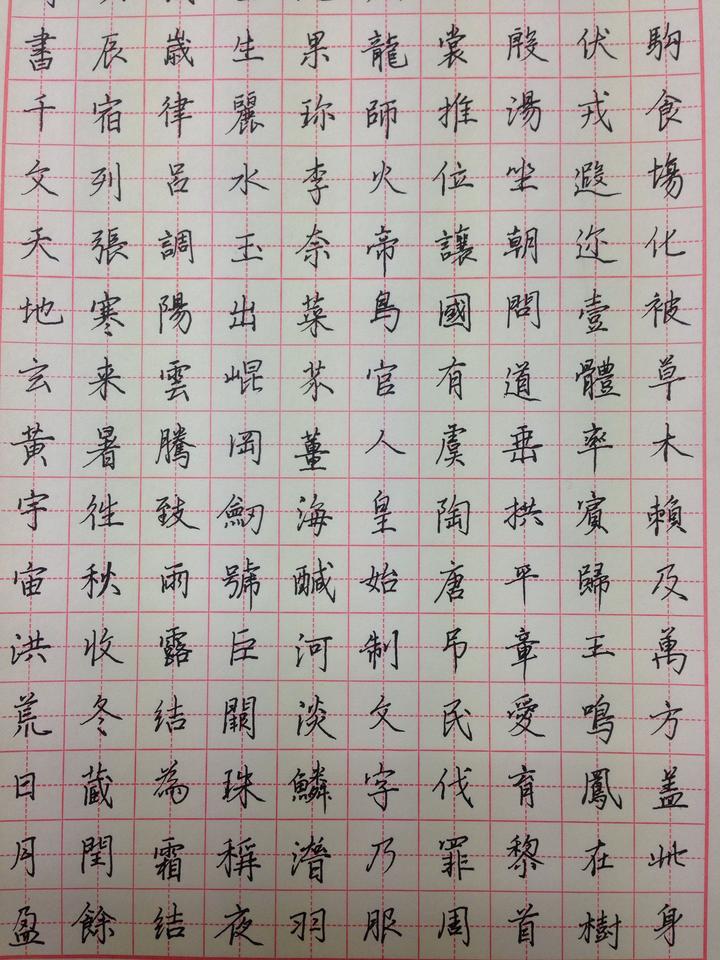 書千文天地玄黃宇宙洪荒日月盈
辰宿列張寒来暑徃秋收冬蔵閏餘
歲律呂調陽雲騰致雨露結為霜結
生麗水玉出崐岡劒號巨闕珠稱夜
果珎李奈菜芥薑海鹹河淡鱗潛羽
龍師火帝鳥官人皇始制文字乃服
裳推位讓國有虞陶唐吊民伐罪周
殷湯坐朝問道垂拱平章愛育黎首
伏戎遐迩壹體率賓歸王鳴鳳在樹
駒食塲化被草木賴及萬方盖此身